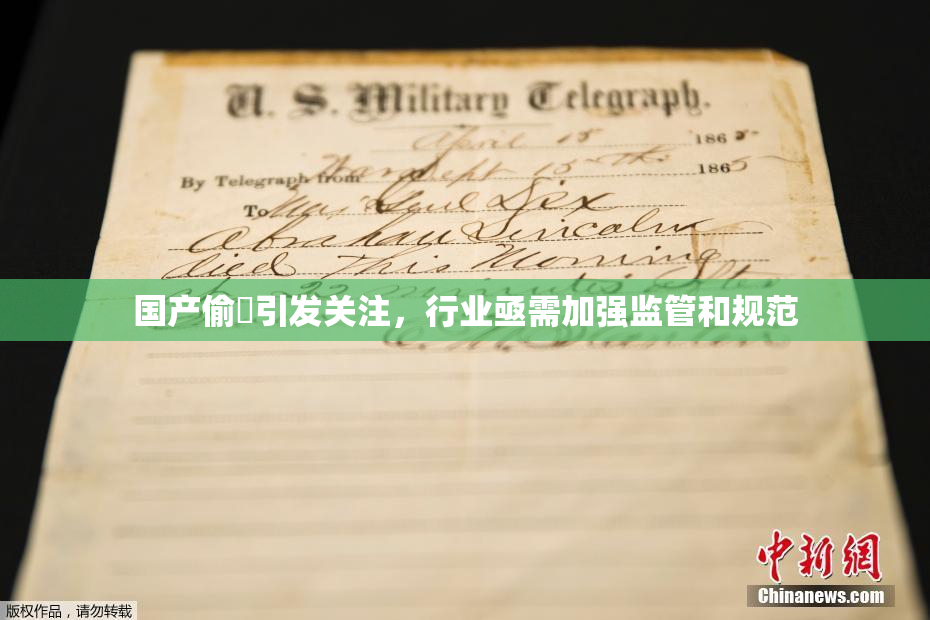 U. S. Military Telegraph.
April 15 1865
By Telegraph from War Dept 15th 1865
To Maj Genl Dix
Abraham Lincoln
died this Morning
22 minutes after
国产偷引发关注，行业亟需加强监管和规范
中新网
Chinanews.com
版权作品，请勿转载